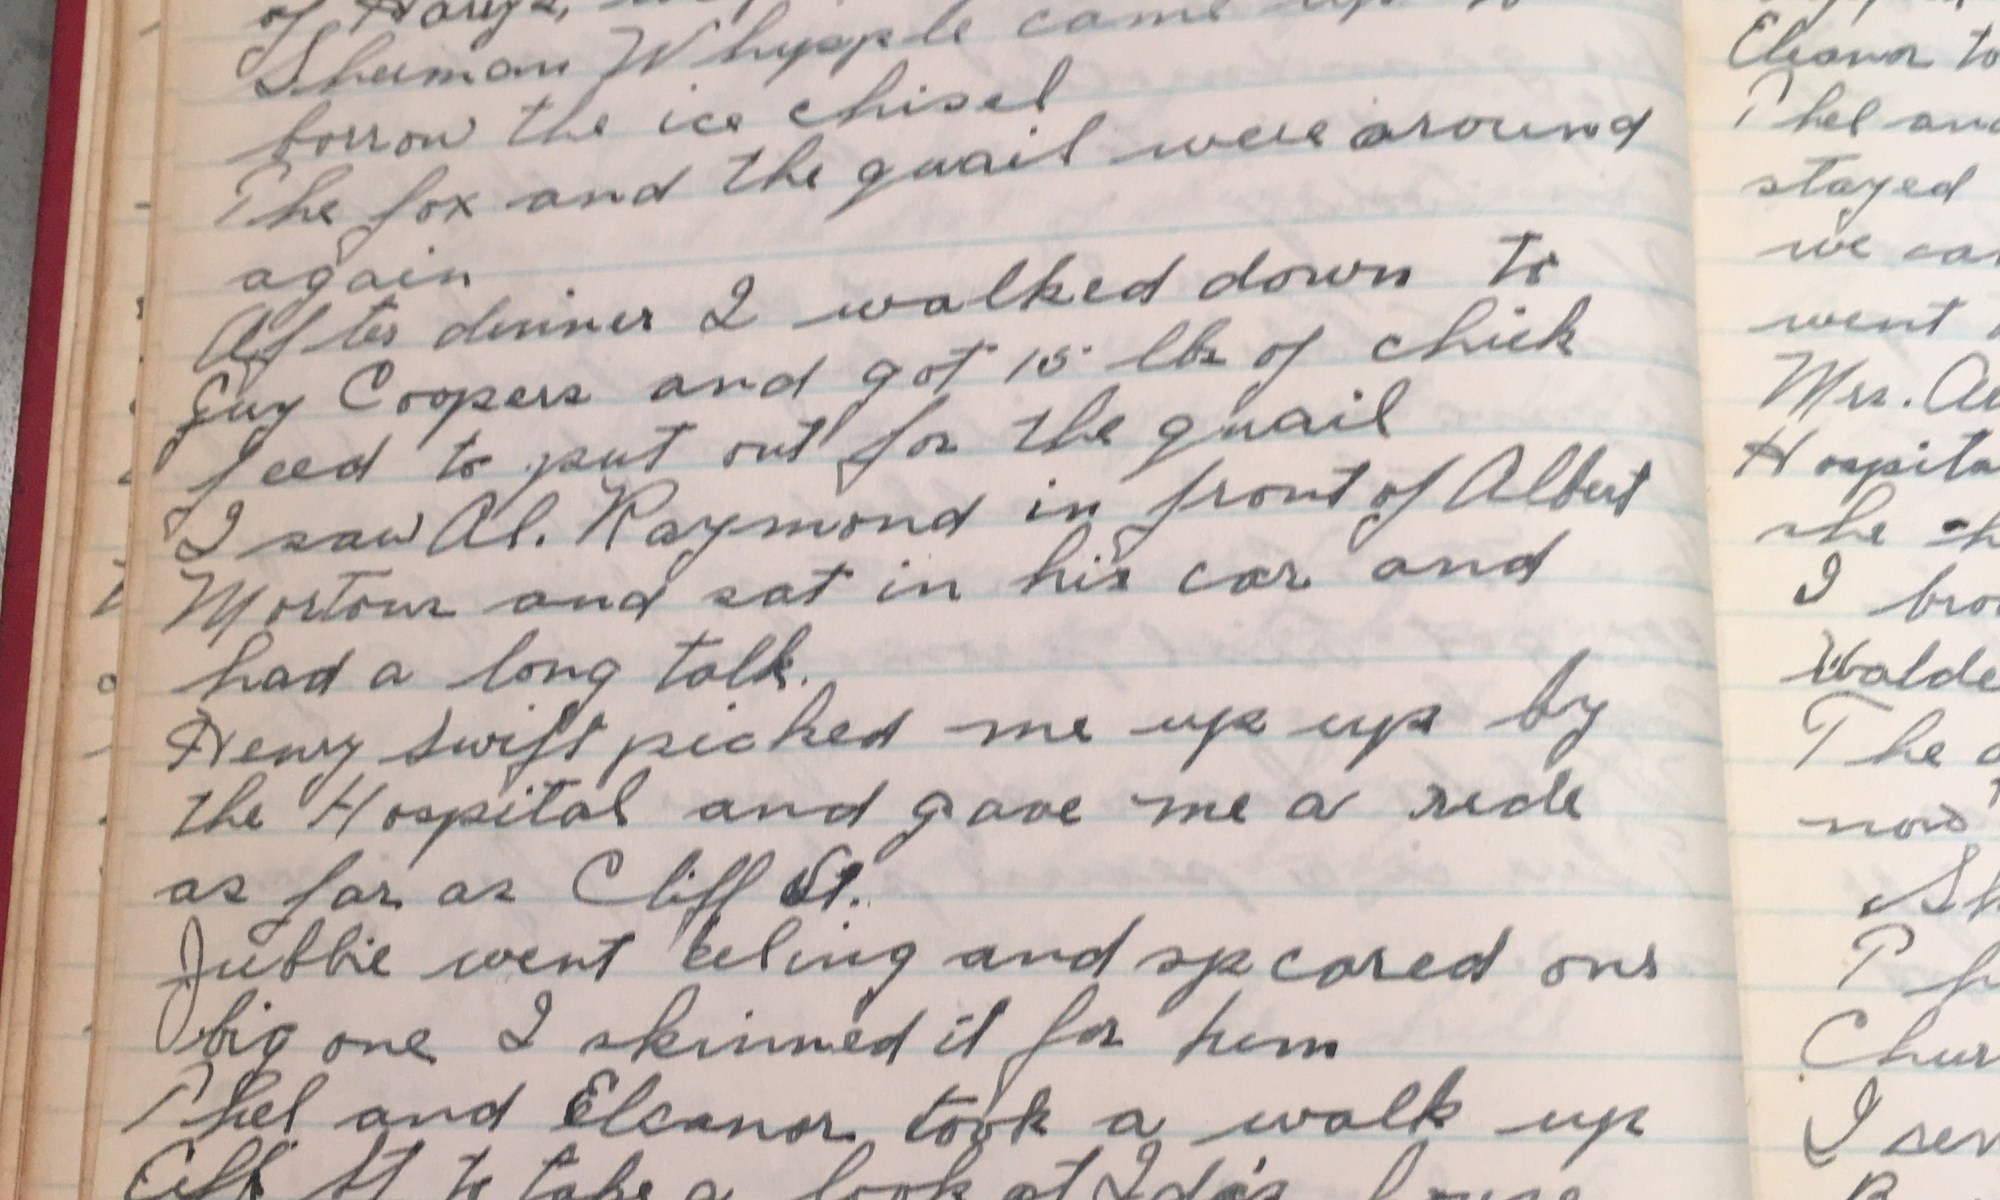 of Harrys,
Sherman Whypple came up to
borrow the ice chisel
The fox and the quail were around
again
After dinner I walked down to
Guy Coopers and got 15 lbs of chick
feed to put out for the quail
I saw Al. Raymond in front of Albert
Mortons and sat in his car and
had a long talk.
Henry Swift picked me up up by
the Hospital and gave me a ride
as far as Cliff St.
Jubbie went eeling and speared one
big one I skinned it for him
Phel and Eleanor took a walk up
Cliff St to take a look at Ida's house
Eleanor to
Phel and
stayed
we
went
Mrs.
she
I
The
now
I